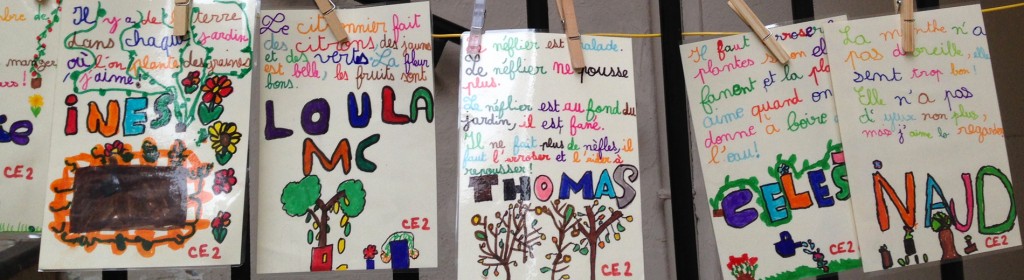 mbre de
manger
CE2
Il y a de la terre
dans chaque jardin
où l'on plante des grains
j'aime!
iNES!
CE2
Le citronnier fait
des citrons des jaunes
et des verts. La fleur
est belle, les fruits sont
bons.
LOULA
MC
CE2
Le néflier est malade.
de néflier ne pousse
plus.
Le néflier est au fond du
jardin, il est fané.
Il ne fait plus de nèfles, il
faut l'arroser et l'aider à
repousser!
THOMAS
CE2
Il faut arroser
plantes sinon el
fanent et la pla
aime quand on
donne à boire d
l'eau!
CELEST
CE2
La menthe n'a
pas d'oreille, elle
sent trop bon!
Elle n'a pas
d'yeux non plus,
mais j'aime la regarder
NAJD
CE2